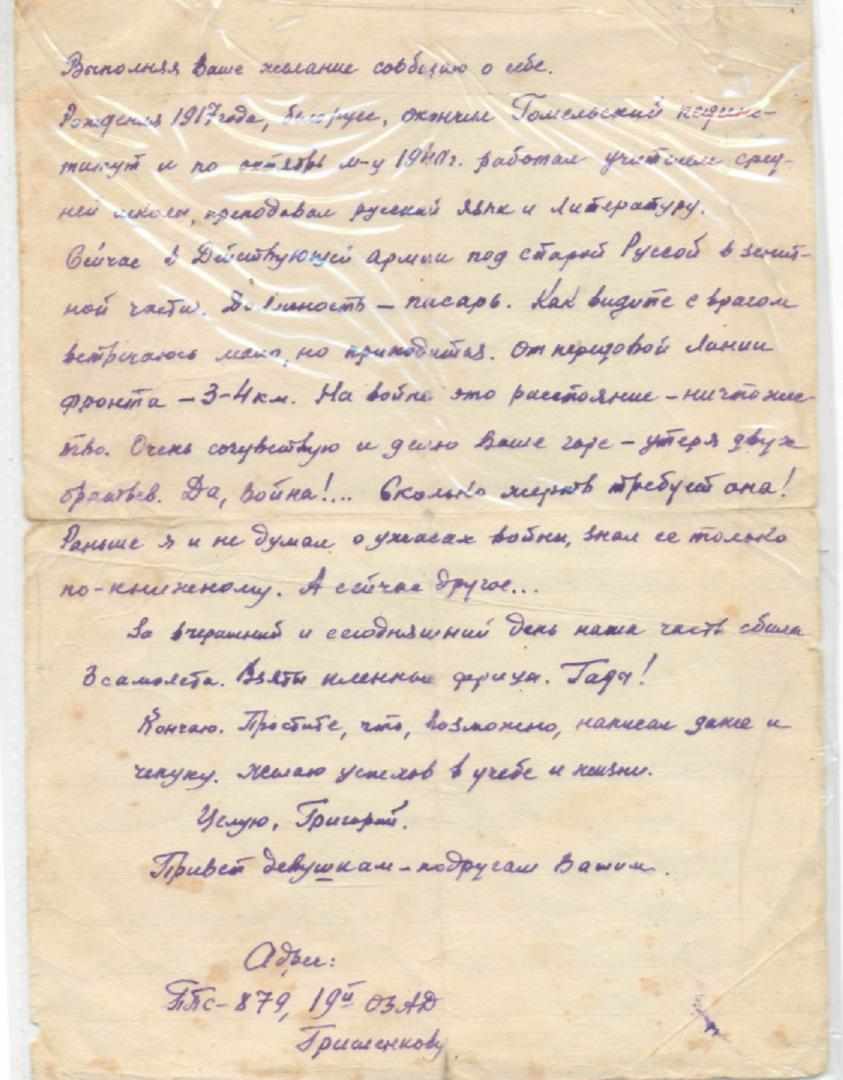 Выполняя Ваше желание сообщаю о себе.
Рождения 1917 года, белорус, окончил Гомельский пединс-
титут и по октябрь м-ц 1940 г. работал учителем сред-
ней школы, преподавал русский язык и литературу.
Сейчас в Действующей армии под старой Руссой в зенит-
ной части. Должность – писарь. Как видите с врагом
встречаюсь мало, но приходится. От передовой линии
фронта – 3-4 км. На войне это расстояние – ничтожес-
тво. Очень сочувствую и делю Ваше горе – утеря двух
братьев. Да, война!... Сколько жертв требует она!
Раньше я и не думал о ужасах войны, знал ее только
по-книжному. А сейчас другое...
За вчерашний и сегодняшний день наша часть сбила
3 самолета. Взяты пленные фрицы. Гады!
Кончаю. Простите, что, возможно, написал даже и
чепуху. Желаю успехов в учебе и жизни.
Целую, Григорий.
Привет девушкам – подругам Вашим.
Адрес:
ППС – 879, 19й ОЗАД
Гришенкову